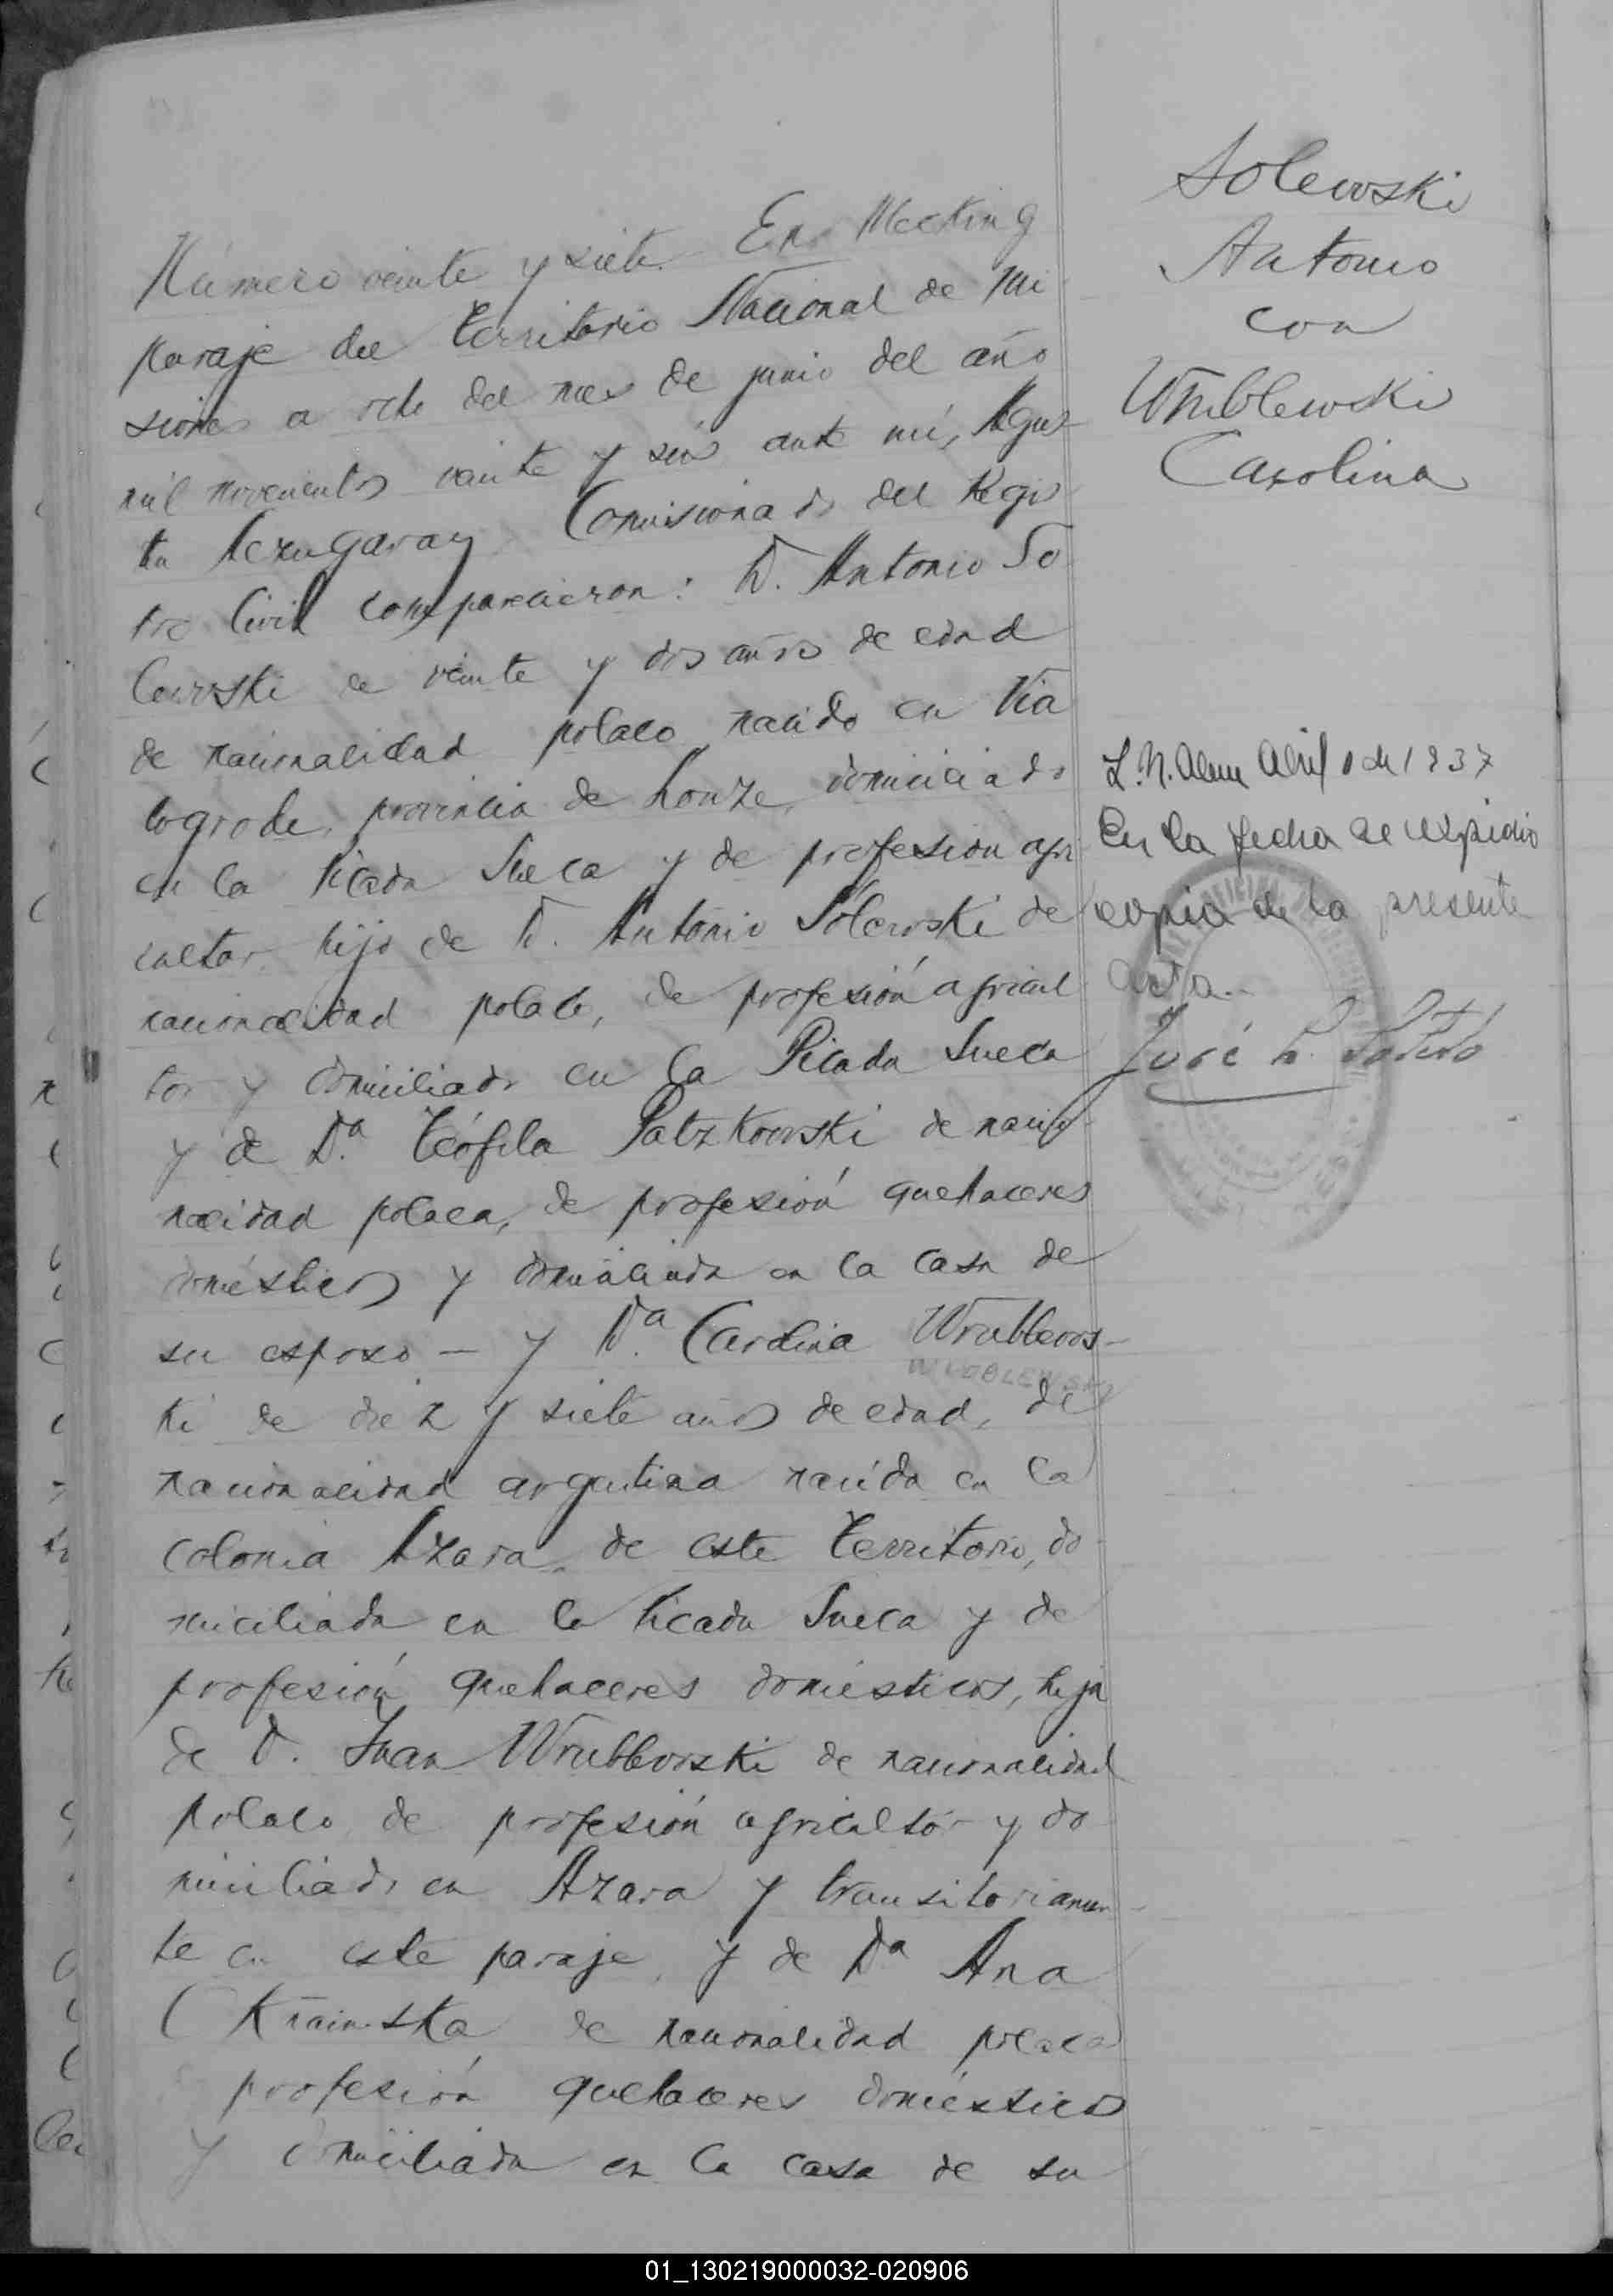 Número veinte y siete. En Mecking
paraje del Territorio Nacional de Mi
siones a ocho del mes de junio del año
mil novecientos veinte y seis ante mí, Agus
tin Aczugaray Comisionado del Regis
tro Civil comparecieron: D. Antonio So
lewski de veinte y dos años de edad
de nacionalidad polaco nacido en Via
logrode, provincia de Lomze, domiciliado
en la Picada Sueca y de profesion agri
cultor hijo de D. Antonio Solewski de
nacionalidad polaco, de profesión agricul
tor y domiciliado en la Picada Sueca
y de Da. Teófila Patzkowski de nacio-
nalidad polaca, de profesión quehaceres
domésticos y domiciliada en la casa de
su esposo — y Da. Carolina Wrublews-
WROBLEWSKI
ki de diez y siete años de edad, de
nacionalidad argentina nacida en la
colonia Azara, de este Territorio, do
miciliada en la Picada Sueca y de
profesión quehaceres domésticos, hija
de D. Juan Wrublewski de nacionalidad
polaco de profesión agricultor y do
miciliado en Azara y transitoriamen-
te en este paraje, y de Da Ana
Krainska de nacionalidad polaca
profesión quehaceres domésticos
y domiciliada en la casa de su
Solewski
Antonio
con
Wrublewski
Carolina
L. N. Alem Abril de 1937
En la fecha se expidio
copia de la presente
acta.-
José
01_130219000032-020906